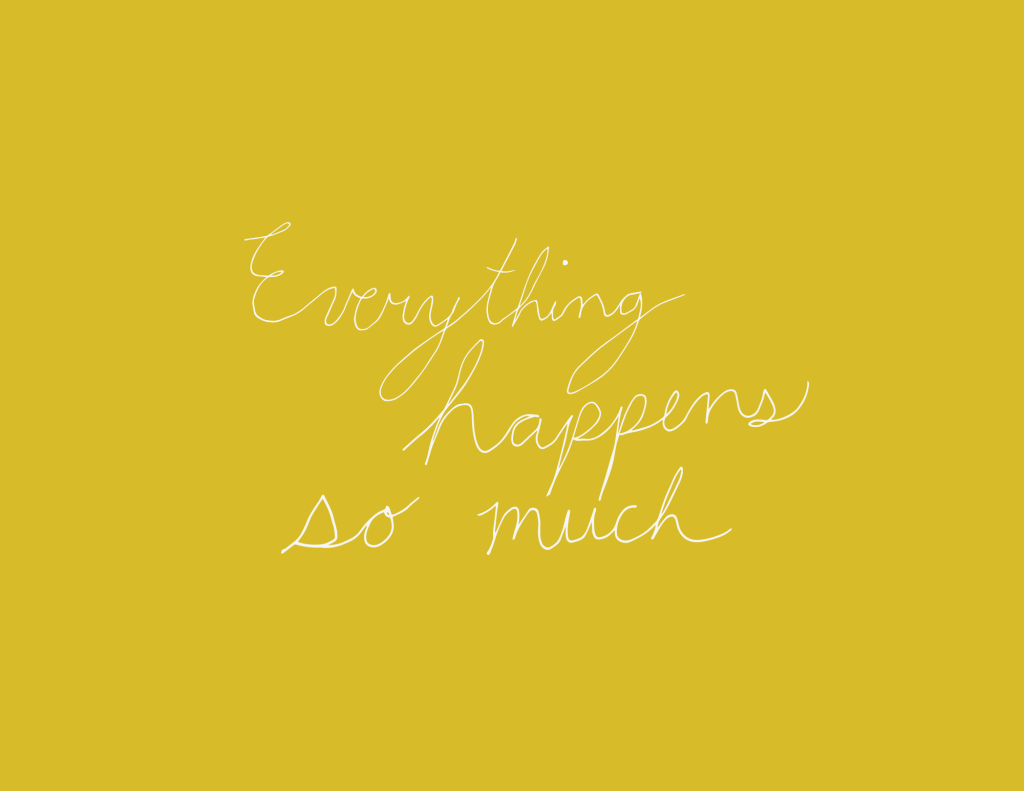 Everything
happens
so much